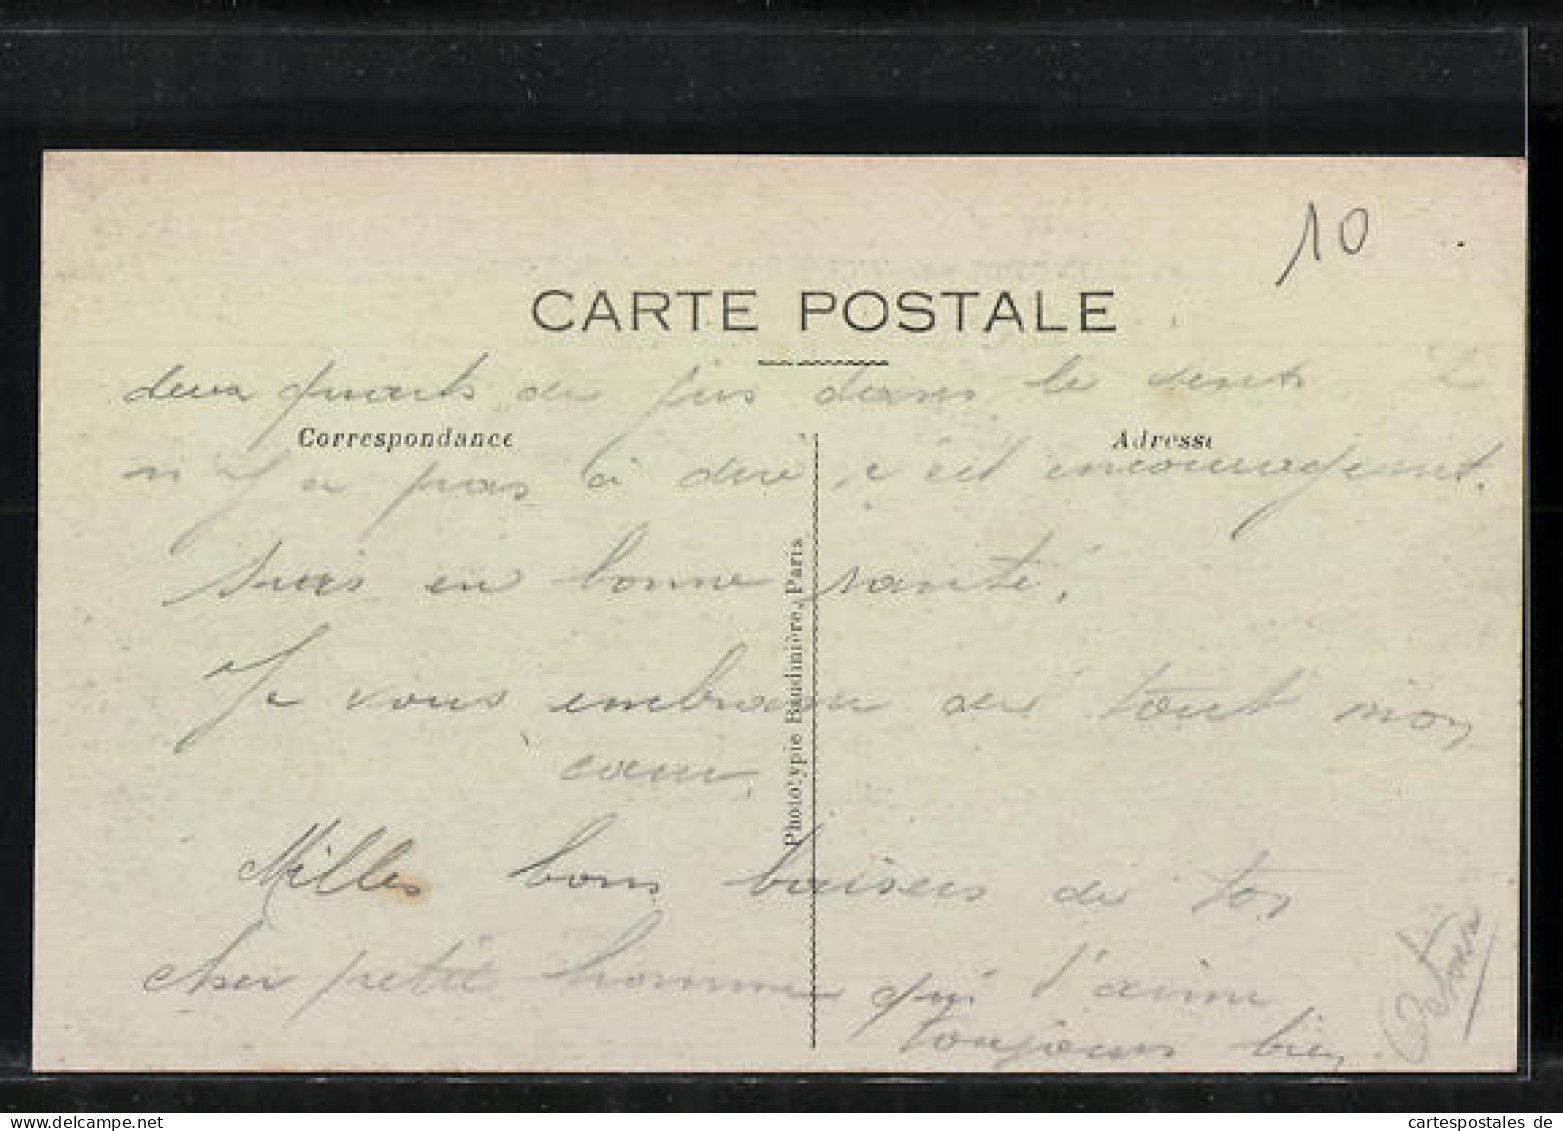 10
CARTE POSTALE
deux quarts de jus dans le vent. Il
Correspondance
Adresse
n'y a pas à dire, c'est encourageant.
Suis en bonne santé.
Phototypie Baudinière, Paris
Je vous embrasse de tout mon
cœur.
Milles bons baisers de ton
cher petit homme qui t'aime
toujours bien.
www.delcampe.net
cartespostales de